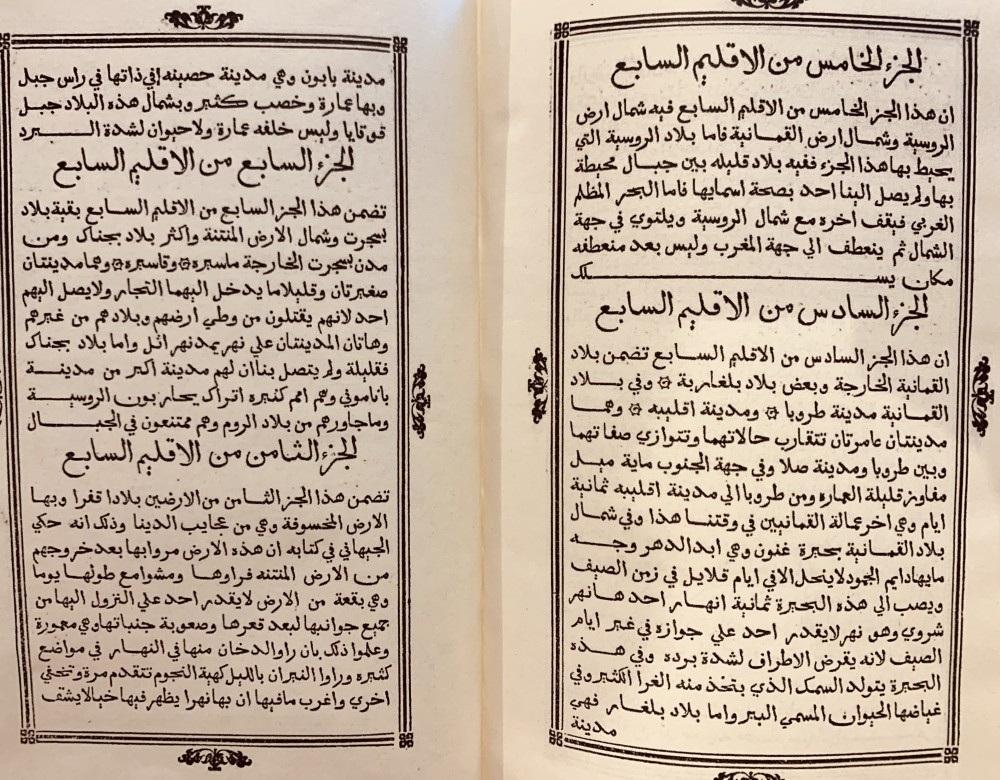 الجزء الخامس من الاقليم السابع
ان هذا الجز الخامس من الاقليم السابع فيه شمال ارض
الروسية وشمال ارض القمانية فاما بلاد الروسية التي
يحيط بها هذا الجزء ففيه بلاد قليله بين جبال محيطة
بها ولم يصل الينا احد بصحة اسمايها فاما البحر المظلم
الغربي فيقف اخره مع شمال الروسية ويلتوي في جهة
الشمال ثم ينعطف الي جهة المغرب وليس بعد منعطفه
مكان يسلك
الجزء السادس من الاقليم السابع
ان هذا الجز السادس من الاقليم السابع تضمن بلاد
القمانية الخارجة وبعض بلاد بلغارية وفي بلاد
القمانية مدينة طروبا ومدينة اقليبه وهما
مدينتان عامرتان تتقارب حالاتهما وتتوازي صفاتهما
وبين طروبا ومدينة صلا وفي جهة الجنوب ماية ميل
مفاوز قليلة العماره ومن طروبا الي مدينة اقليبه ثمانية
ايام وهي اخر عمالة القمانيين في وقتنا هذا وفي شمال
بلاد القمانية بحيرة غنون وهي ابد الدهر وجه
مايها دايم الجمود لا ينحل الا في ايام قلايل في زمن الصيف
ويصب الي هذه البحيرة ثمانية انهار احدها نهر
شروي وهو نهر لا يقدر احد علي جوازه في غير ايام
الصيف لانه يقرض الاطراف لشدة برده وفي هذه
البحيرة يتولد السمك الذي يتخذ منه الغرا الكثير وفي
غياضها الحيوان المسمي الببر واما بلاد بلغار فهي
مدينة
مدينة بابون وهي مدينة حصينه في ذاتها في راس جبل
وبها عمارة وخصب كثير وبشمال هذه البلاد جبل
قوقايا وليس خلفه عمارة ولا حيوان لشدة البرد
الجزء السابع من الاقليم السابع
تضمن هذا الجز السابع من الاقليم السابع بقية بلاد
بسجرت وشمال الارض المنتنة واكثر بلاد بجناك ومن
مدن بسجرت الخارجة ماسيره وقاسيره وهما مدينتان
صغيرتان وقليلا ما يدخل اليهما التجار ولا يصل اليهم
احد لانهم يقتلون من وطي ارضهم وبلادهم من غيرهم
وهاتان المدينتان علي نهر يمد نهر اثل واما بلاد بجناك
فقليلة ولم يتصل بنا ان لهم مدينة اكبر من مدينة
باناموني وهم امم كثيره اتراك يحاربون الروسية
وما جاورهم من بلاد الروم وهم ممتنعون في الجبال
الجزء الثامن من الاقليم السابع
تضمن هذا الجز الثامن من الارضين بلادا قفرا وبها
الارض المخسوفة وهي من عجايب الدينا وذلك انه حكي
الجيهاني في كتابه ان هذه الارض مروا بها بعد خروجهم
من الارض المنتنه فراوها ومشوا مع طولها يوما
وهي بقعة من الارض لا يقدر احد علي النزول اليها من
جميع جوانبها لبعد قعرها وصعوبة جنباتها وهي معمورة
وعلموا ذلك بان راوا لدخان منها في النهار في مواضع
كثيره وراوا النيران بالليل كهية النجوم تتقدم مرة وتخفي
اخري واغرب ما فيها ان بها نهرا يظهر فيها خيالا يشف